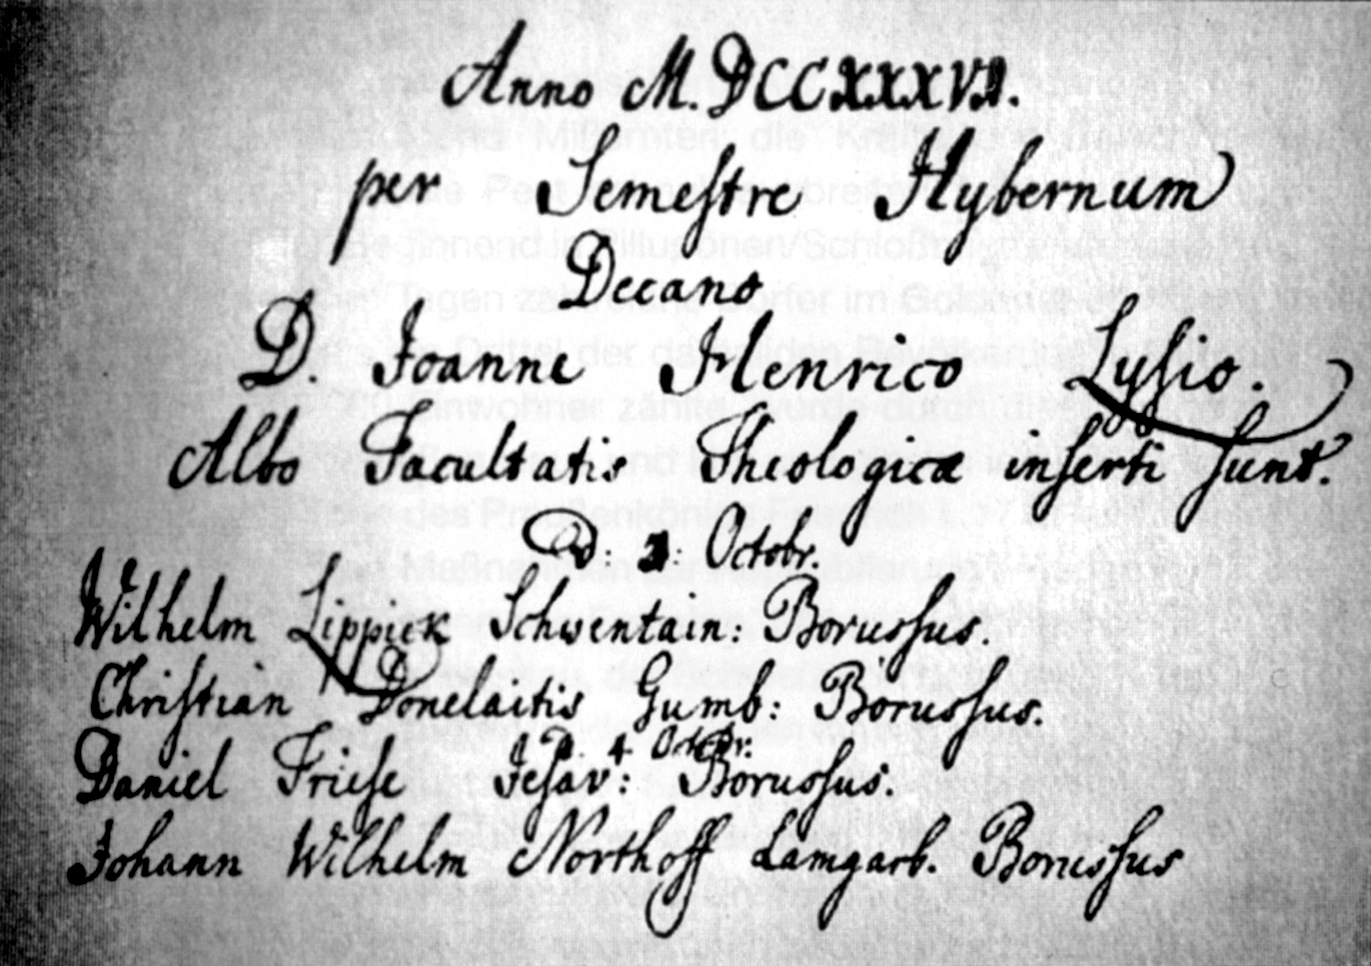 Anno M. DCCXXXVI.
per Semeſtre Hybernum
Decano
D. Joanne Henrico Lyſio.
Albo Facultatis Theologicæ inſerti ſunt.
D: Octobr.
Wilhelm Lippick Schwentain: Borusſus.
Chriſtian Donelaitis Gumb: Borusſus.
D. 4 Octobr.
Daniel Frieſe Jeſav: Borusſus.
Johann Wilhelm Northoff Lamgarb. Borusſus